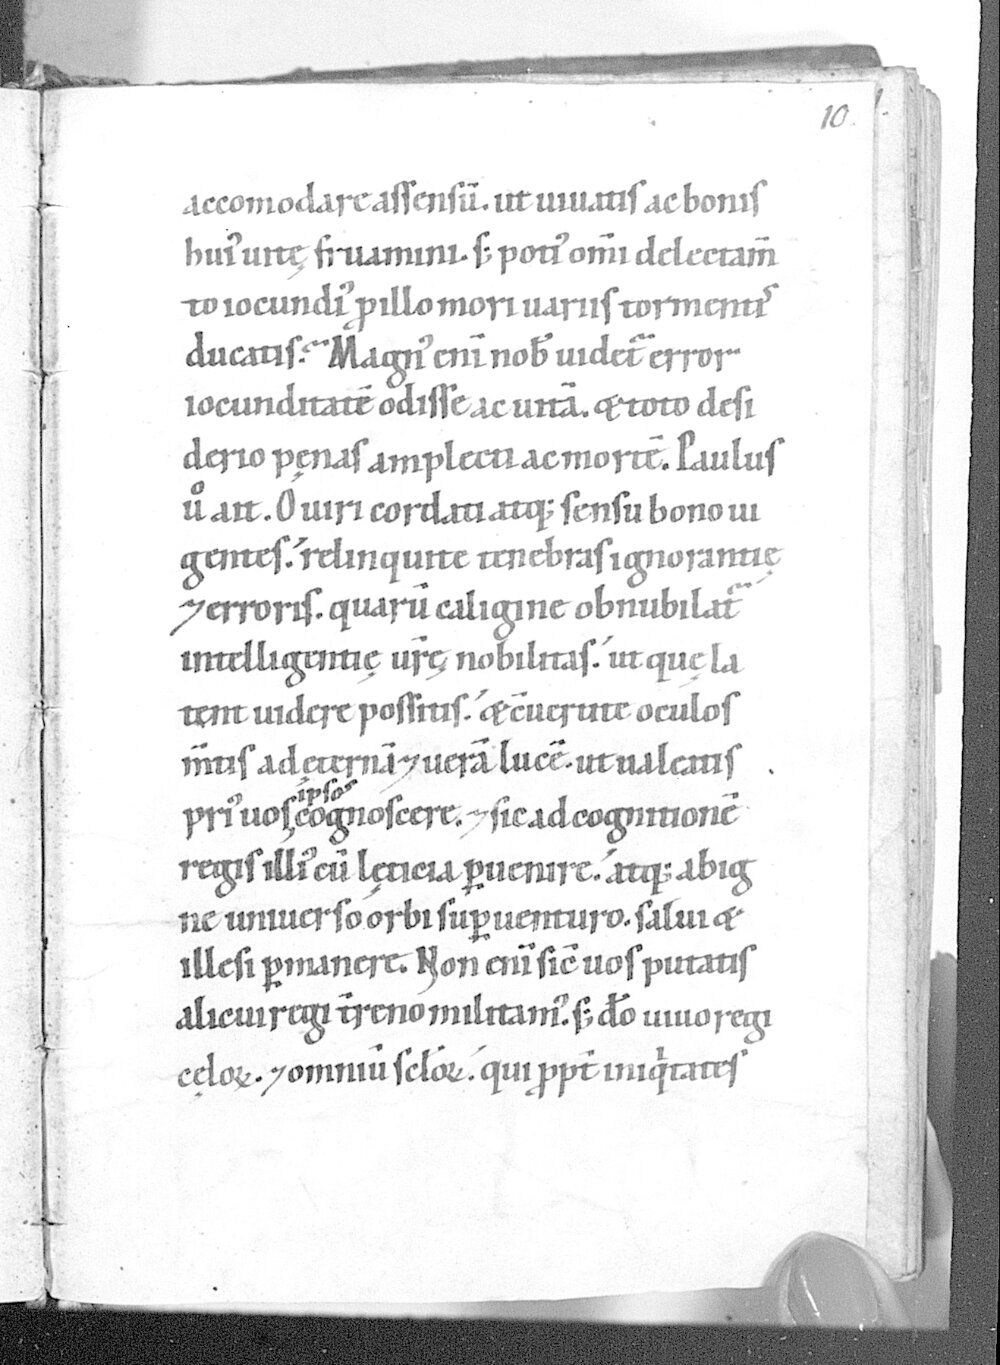 10.
accomodare assensū. ut uiuatis ac bonis
huiꝰ uitę fruamini. s; potiꝰ om̄i delectam̄
to iocundiꝰ ꝓ illo mori uariis tormentiſ
ducatis. Magnꝰ eni̅ nob̅ uidet᷑ error
iocunditatē odisse ac uitā. & toto desi
derio pęnas amplecti ac mortē. Paulus
uͦ ait. O uiri cordati atq; sensu bono ui
gentes. relinquite tenebras ignorantię
⁊ erroris. quarū caligine obnubilat᷑
intelligentię ur̄ę nobilitas. ut quę la
tent uidere possitis. & c̄uertite oculos
m̄tis ad ęternā ⁊ uerā lucē. ut ualeatis
priꝰ uos ipsos cognoscere. ⁊ sic ad cognitionē
regis illiꝰ cū lęticia ꝑuenire. atq; ab ig
ne uniuerso orbi suꝑuenturo. salui &
illesi ꝑmanere. Non eni̅ sic̄ uos putatis
alicui regi t̄reno militamꝰ. s; do̅ uiuo regi
cęloꝝ. ⁊ omniū sc̅loꝝ. qui ꝓpt̄ iniqͥtates